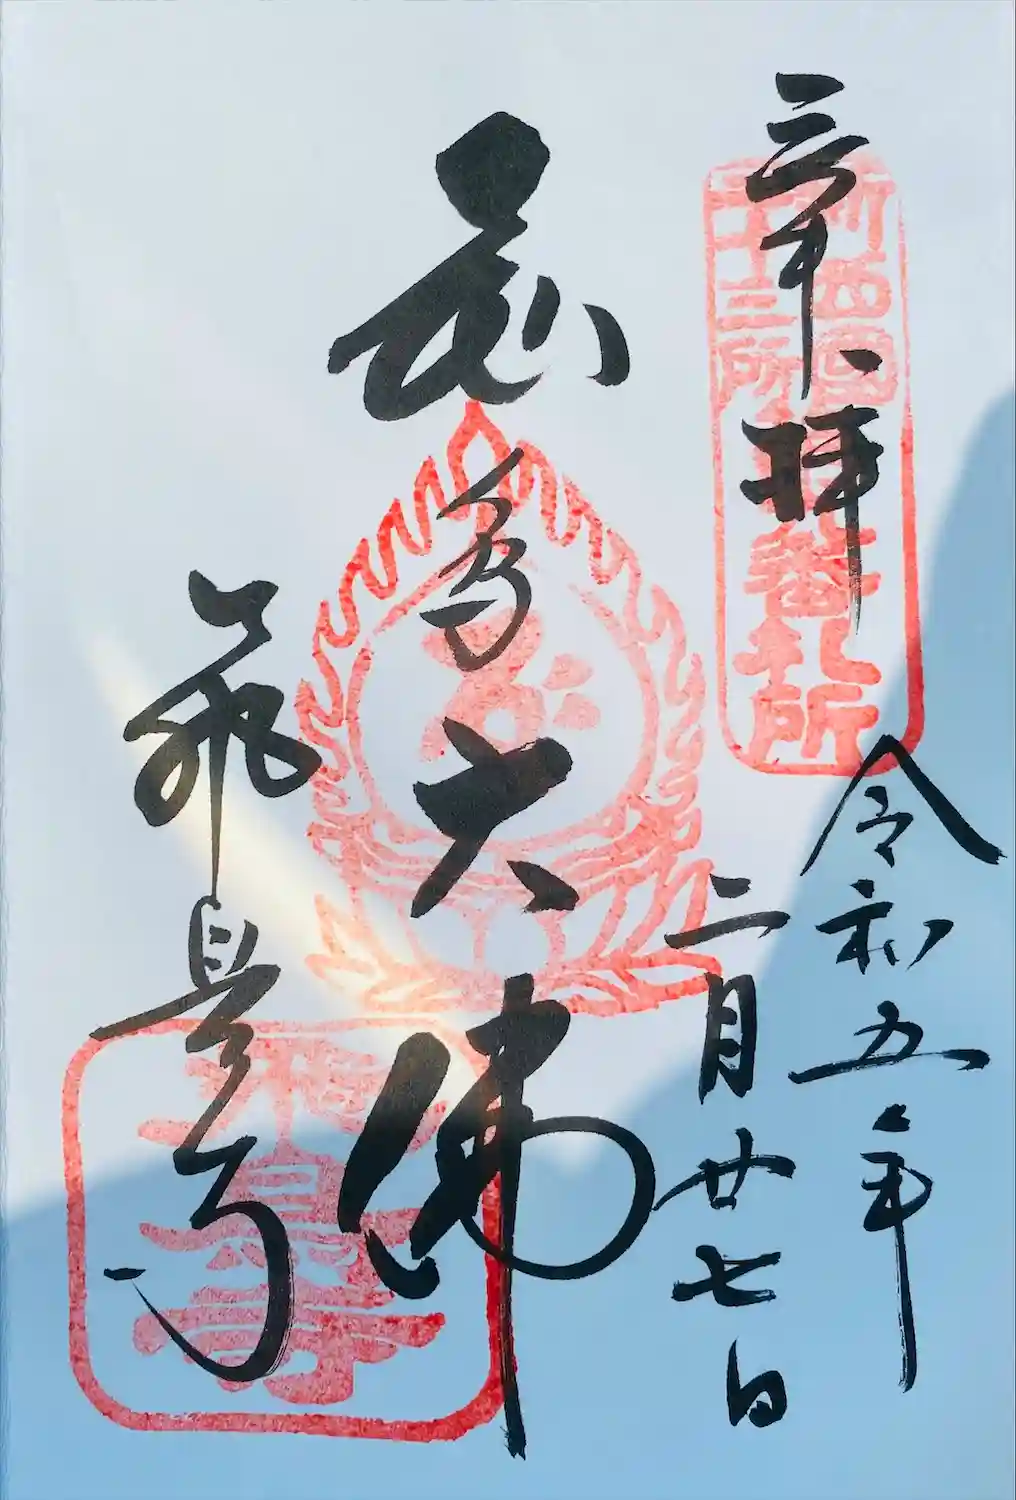 奉拝
新西國
三十三所
番札所
令和五年
二月廿七日
飛鳥大佛
飛鳥寺
飛鳥寺